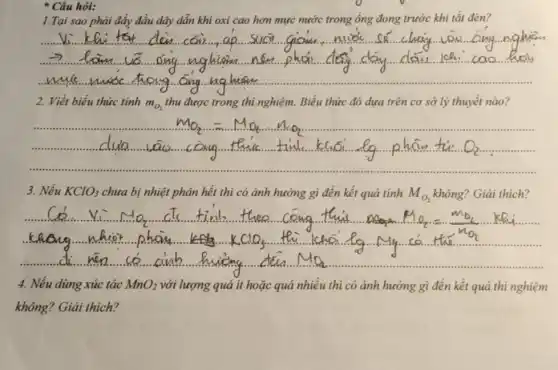 * Câu hỏi:
1. Tại sao phải đẩy đầu dây dẫn khí oxi cao hơn mực nước trong ống đong trước khi tắt đèn?
Vì khi tắt đèn cồn, áp suất giảm, nước sẽ chảy vào ống nghiệm
→ làm vỡ ống nghiệm nên phải đẩy dây dẫn khí cao hơn
mực nước trong ống nghiệm
2. Viết biểu thức tính mO₂ thu được trong thí nghiệm. Biểu thức đó dựa trên cơ sở lý thuyết nào?
mO₂ = MO₂ . nO₂
dựa vào công thức tính khối lg phân tử O₂.
3. Nếu KClO₃ chưa bị nhiệt phân hết thì có ảnh hưởng gì đến kết quả tính MO₂ không? Giải thích?
Có. Vì MO₂ đc tính theo công thức MO₂ = mO₂/nO₂ khi
không nhiệt phân KClO₃ thì khối lg có thể
đi nên có ảnh hưởng đến MO₂
4. Nếu dùng xúc tác MnO₂ với lượng quá ít hoặc quá nhiều thì có ảnh hưởng gì đến kết quả thí nghiệm
không? Giải thích?